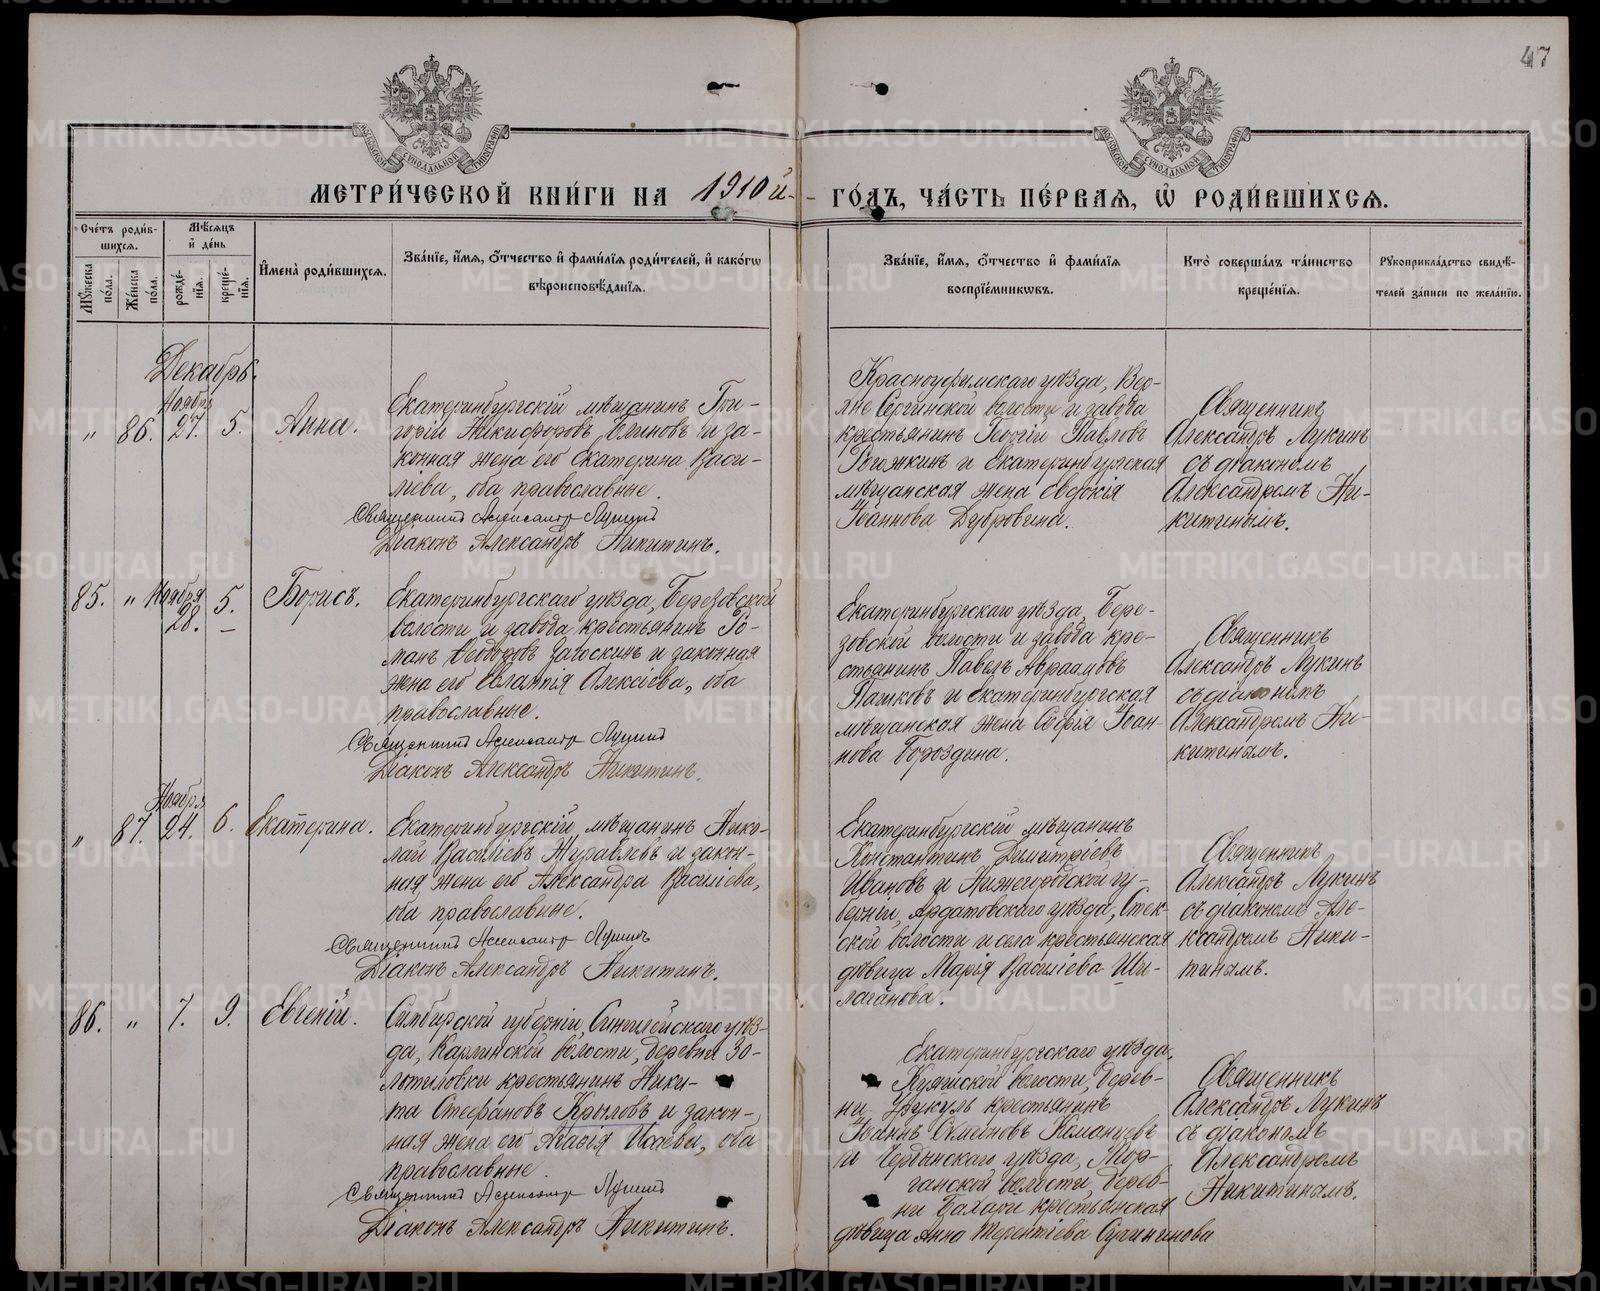 47
МОСКОВСКОЙ СѴНОДАЛЬНОЙ ТИПОГРАФІИ
МОСКОВСКОЙ СѴНОДАЛЬНОЙ ТИПОГРАФІИ
МЕТРИ́ЧЕСКОЙ КНИ́ГИ НА 1910й - ГО́ДЪ, ЧА́СТЬ ПЕ́РВАѦ, Ѡ҆ РОДИ́ВШИХСѦ.
Сче́тъ роди́в-
шихсѧ.
Мꙋ́жеска по́ла.
Же́нска по́ла.
Мѣ́сѧцъ
и҆ де́нь
рожде́-
нїѧ.
креще́-
нїѧ.
И҆мена̀ роди́вшихсѧ.
Зва́нїе, и҆́мѧ, ѻ҆́тчество и҆ фами́лїѧ роди́телей, и҆ како́гѡ
вѣроисповѣ́данїѧ.
Зва́нїе, и҆́мѧ, ѻ҆́тчество и҆ фами́лїѧ
воспрїе́мникѡвъ.
Кто̀ соверша́лъ та́инство
креще́нїѧ.
Рꙋкоприкла́дство свидѣ́-
телей за́писи по жела́нїю.
Декабрь.
" 86. Ноября 27. 5. Анна.
Екатеринбургскій мѣщанинъ Гри-
горій Никифоровъ Блиновъ и за-
конная жена его Екатерина Васи-
льева, оба православные.
Священникъ Александръ Лукинъ
Діаконъ Александръ Никитинъ.
Красноуфимскаго уѣзда, Вер-
хне Сергинской волости и завода
крестьянинъ Георгій Павловъ
Рогожкинъ и Екатеринбургская
мѣщанская жена Евдокія
Іоаннова Дубровина.
Священникъ
Александръ Лукинъ
съ діакономъ
Александромъ Ни-
китинымъ.
85. " Ноября 28. 5. Борисъ.
Екатеринбургскаго уѣзда, Березовской
волости и завода крестьянинъ Ро-
манъ Ѳеодоровъ и законная
жена его Евлампія Алексіева, оба
православные.
Священникъ Александръ Лукинъ
Діаконъ Александръ Никитинъ.
Екатеринбургскаго уѣзда, Бере-
зовской волости и завода кре-
стьянинъ Павелъ Авраамовъ
Пашковъ и Екатеринбургская
мѣщанская жена Софія Іоан-
нова Бороздина.
Священникъ
Александръ Лукинъ
съ діакономъ
Александромъ Ни-
китинымъ.
" 87. Ноября 24. 6. Екатерина.
Екатеринбургскій мѣщанинъ Нико-
лай Василіевъ Журавлевъ и закон-
ная жена его Александра Василіева,
оба православные.
Священникъ Александръ Лукинъ
Діаконъ Александръ Никитинъ.
Екатеринбургскій мѣщанинъ
Константинъ Димитріевъ
Ивановъ и Нижегородской гу-
берніи, Ардатовскаго уѣзда, Стек-
ской волости и села крестьянская
дѣвица Марія Василіева Ши-
логанова.
Священникъ
Александръ Лукинъ
съ діакономъ Але-
ксандромъ Ники-
тинымъ.
86. " 7. 9. Евгеній.
Симбирской губерніи, Сингилейскаго уѣз-
да, Карлинской волости, деревни Зо-
льтиловки крестьянинъ Ники-
та Стефановъ Крыловъ и закон-
ная жена его Агафія Исаева, оба
православные.
Священникъ Александръ Лукинъ
Діаконъ Александръ Никитинъ.
Екатеринбургскаго уѣзда,
Куяшской волости, дерев-
ни Урукуль крестьянинъ
Іоаннъ Симеоновъ Команцевъ
и Чердынскаго уѣзда, Мор-
чанской волости, дерев-
ни Бахари крестьянская
дѣвица Анна Терентіева
Священникъ
Александръ Лукинъ
съ діакономъ
Александромъ
Никитинымъ.
METRIKI.GASO-URAL.RU